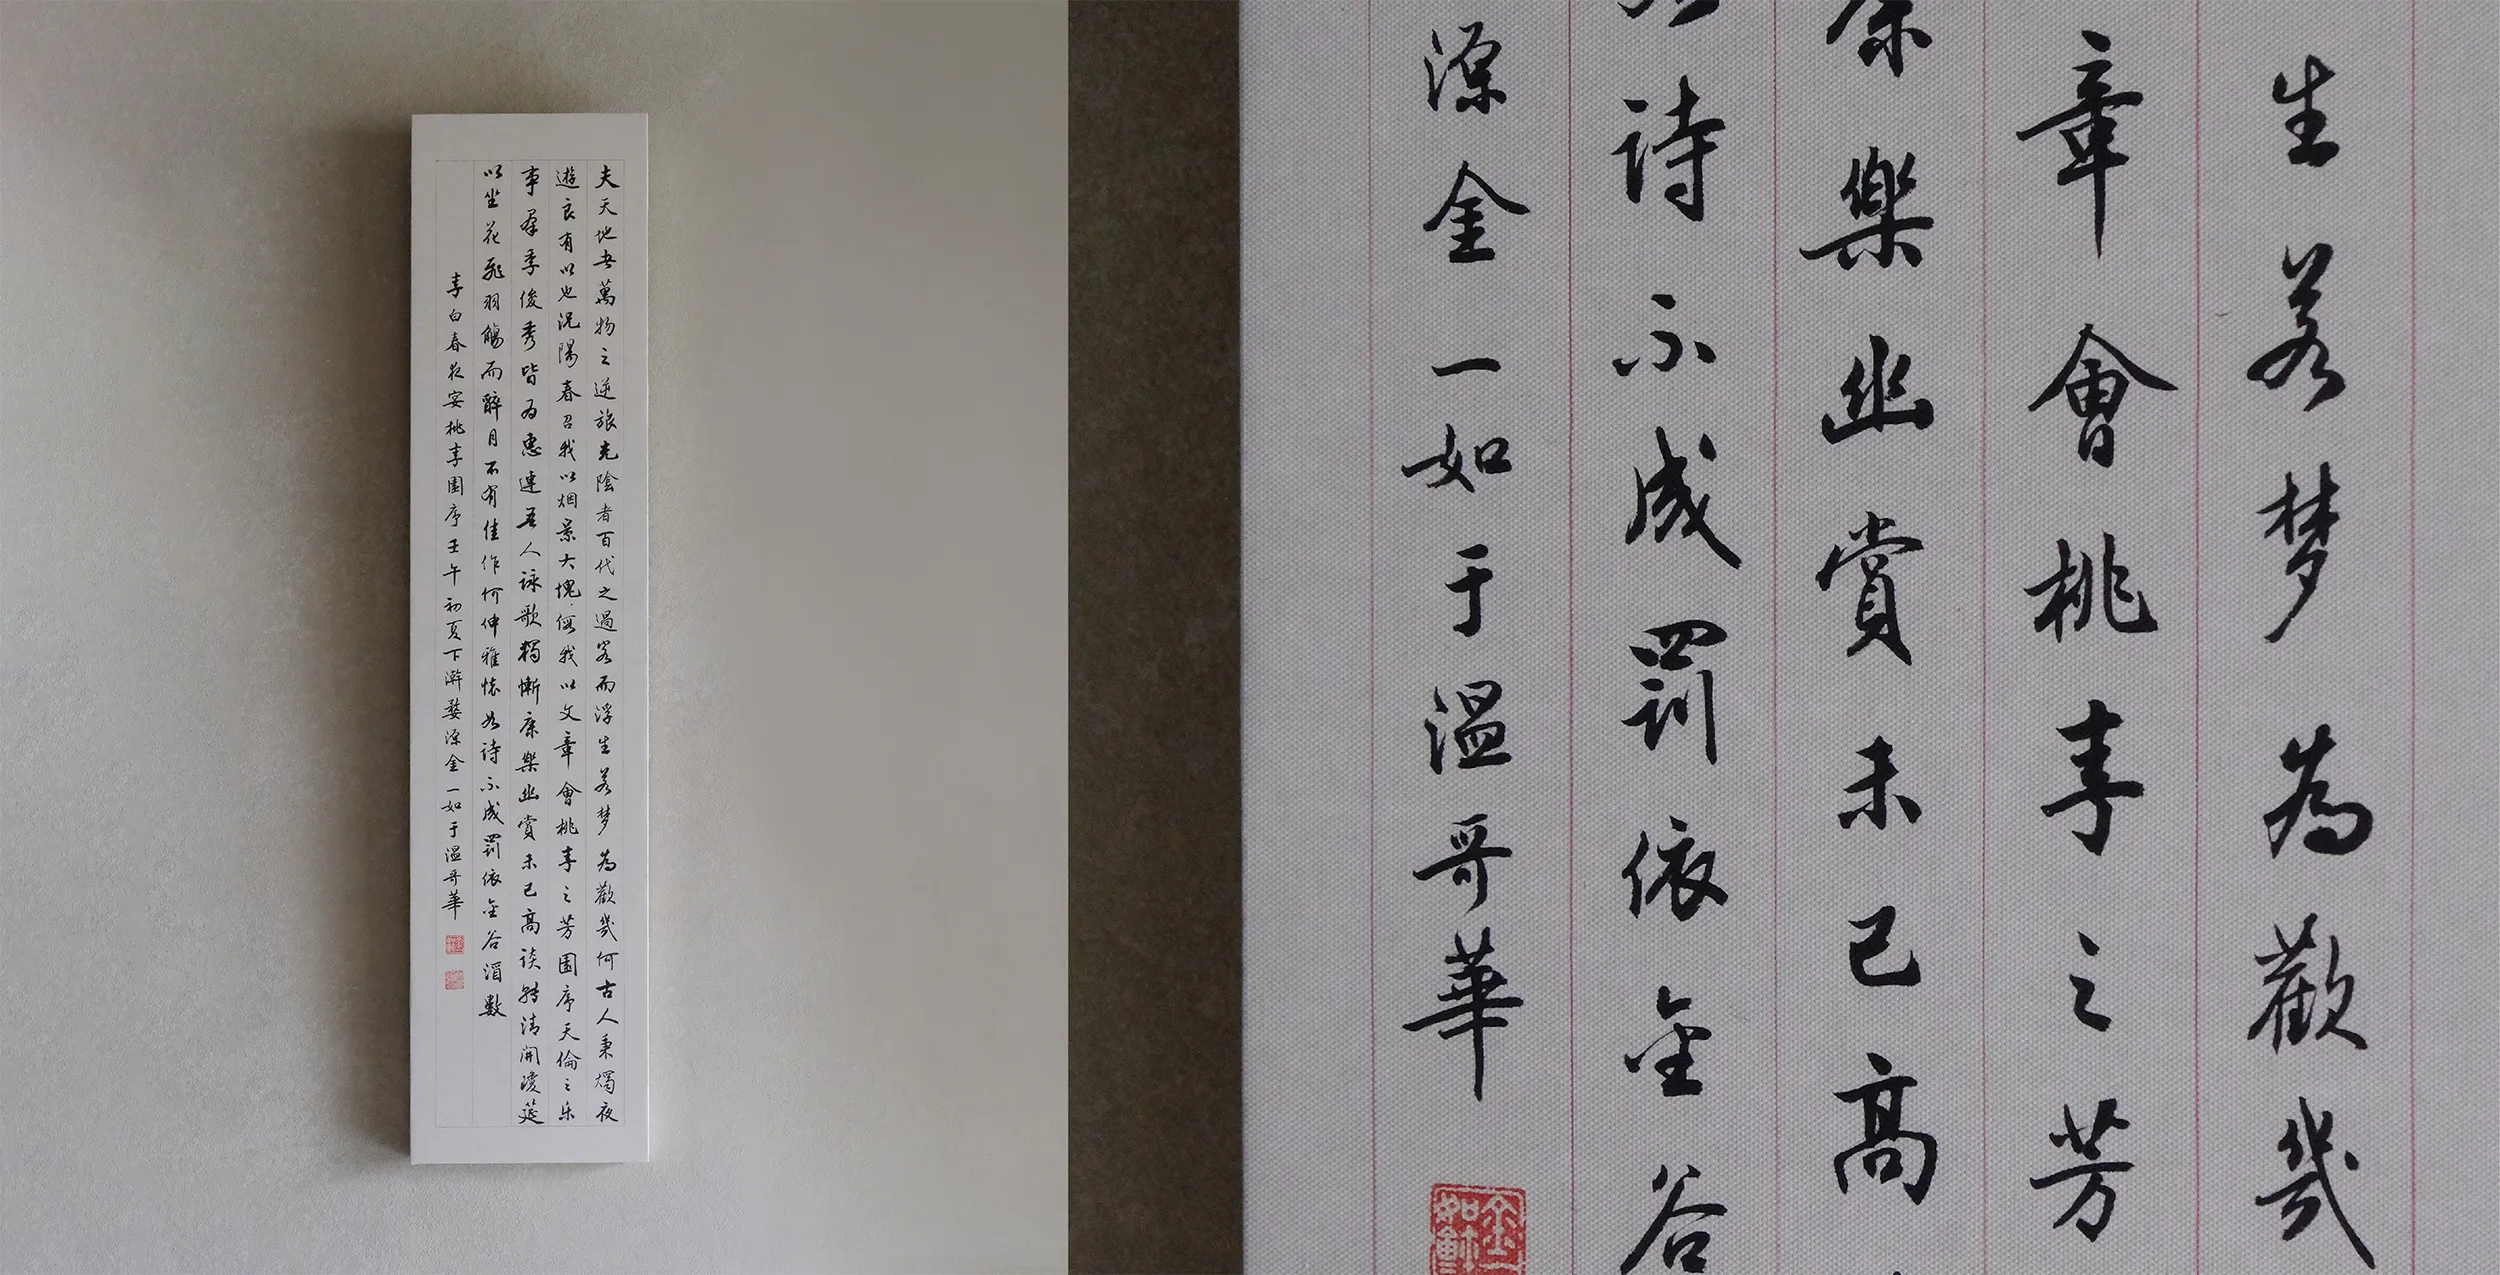 夫天地者萬物之逆旅光陰者百代之過客而浮生若梦為歡幾何古人秉燭夜
遊良有以也況陽春召我以烟景大塊假我以文章會桃李之芳園序天倫之乐
事羣季俊秀皆为惠連吾人詠歌獨慚康樂幽賞未已高談轉清開瓊筵
以坐花飛羽觴而醉月不有佳作何伸雅懷如詩不成罰依金谷酒數
李白春夜宴桃李園序壬午初夏下澣婺源金一如于溫哥華
生若梦為歡幾
章會桃李之芳
康樂幽賞未已高
詩不成罰依金谷
源金一如于溫哥華